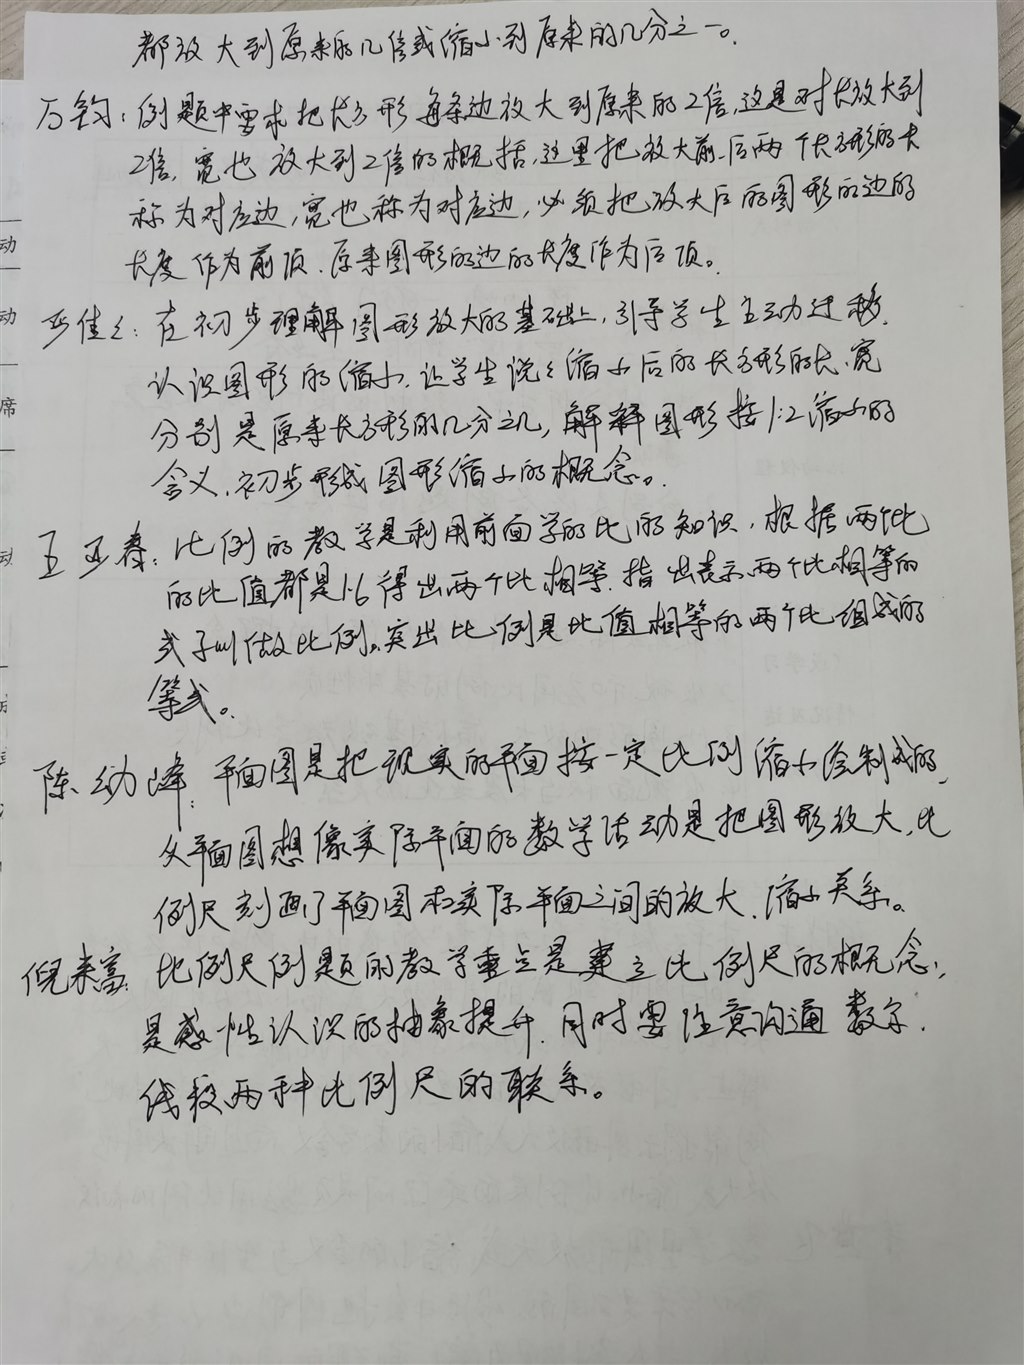 都放大到原来的几倍或缩小到原来的几分之一。
万钧：例题中要求把长方形每条边放大到原来的2倍，这是对长放大到
2倍，宽也放大到2倍的概括，这里把放大前、后两个长方形的长
称为对应边，宽也称为对应边，必须把放大后的图形的边的
长度作为前项、原来图形的边的长度作为后项。
在初步理解图形放大的基础上，引导学生主动迁移，
认识图形的缩小，让学生说说缩小后的长方形的长、宽
分别是原来长方形的几分之几，解释图形按1:2缩小的
含义，初步形成图形缩小的概念。
王亚春：比例的教学是利用前面学的比的知识，根据两个比
的比值都是1.6得出两个比相等，指出表示两个比相等的
式子叫做比例。突出比例是比值相等的两个比组成的
等式。
陈幼峰：平面图是把现实的平面按一定比例缩小绘制成的，
从平面图想像实际平面的数学活动是把图形放大，比
例尺刻画了平面图和实际平面之间的放大、缩小关系。
倪来富：比例尺例题的教学重点是建立比例尺的概念，
是感性认识的抽象提升，同时要注意沟通数字、
线段两种比例尺的联系。
动
动
席
动